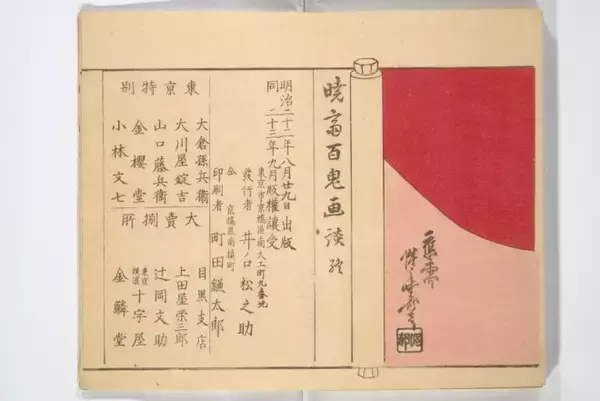 暁斎百鬼画談 終
明治二十二年八月廿九日出版
同 二十三年九月版權讓受
東京市京橋區南大工町九番地
發行者 井ノ口松之助
仝 京橋區南槇町
印刷者 町田鎌太郎
東京特別
大倉孫兵衛
大川屋錠吉
山口藤兵衛
金櫻堂
小林文七
大賣捌所
目黒支店
上田屋栄三郎
辻岡文助
東京
横濱 十字屋
金鱗堂